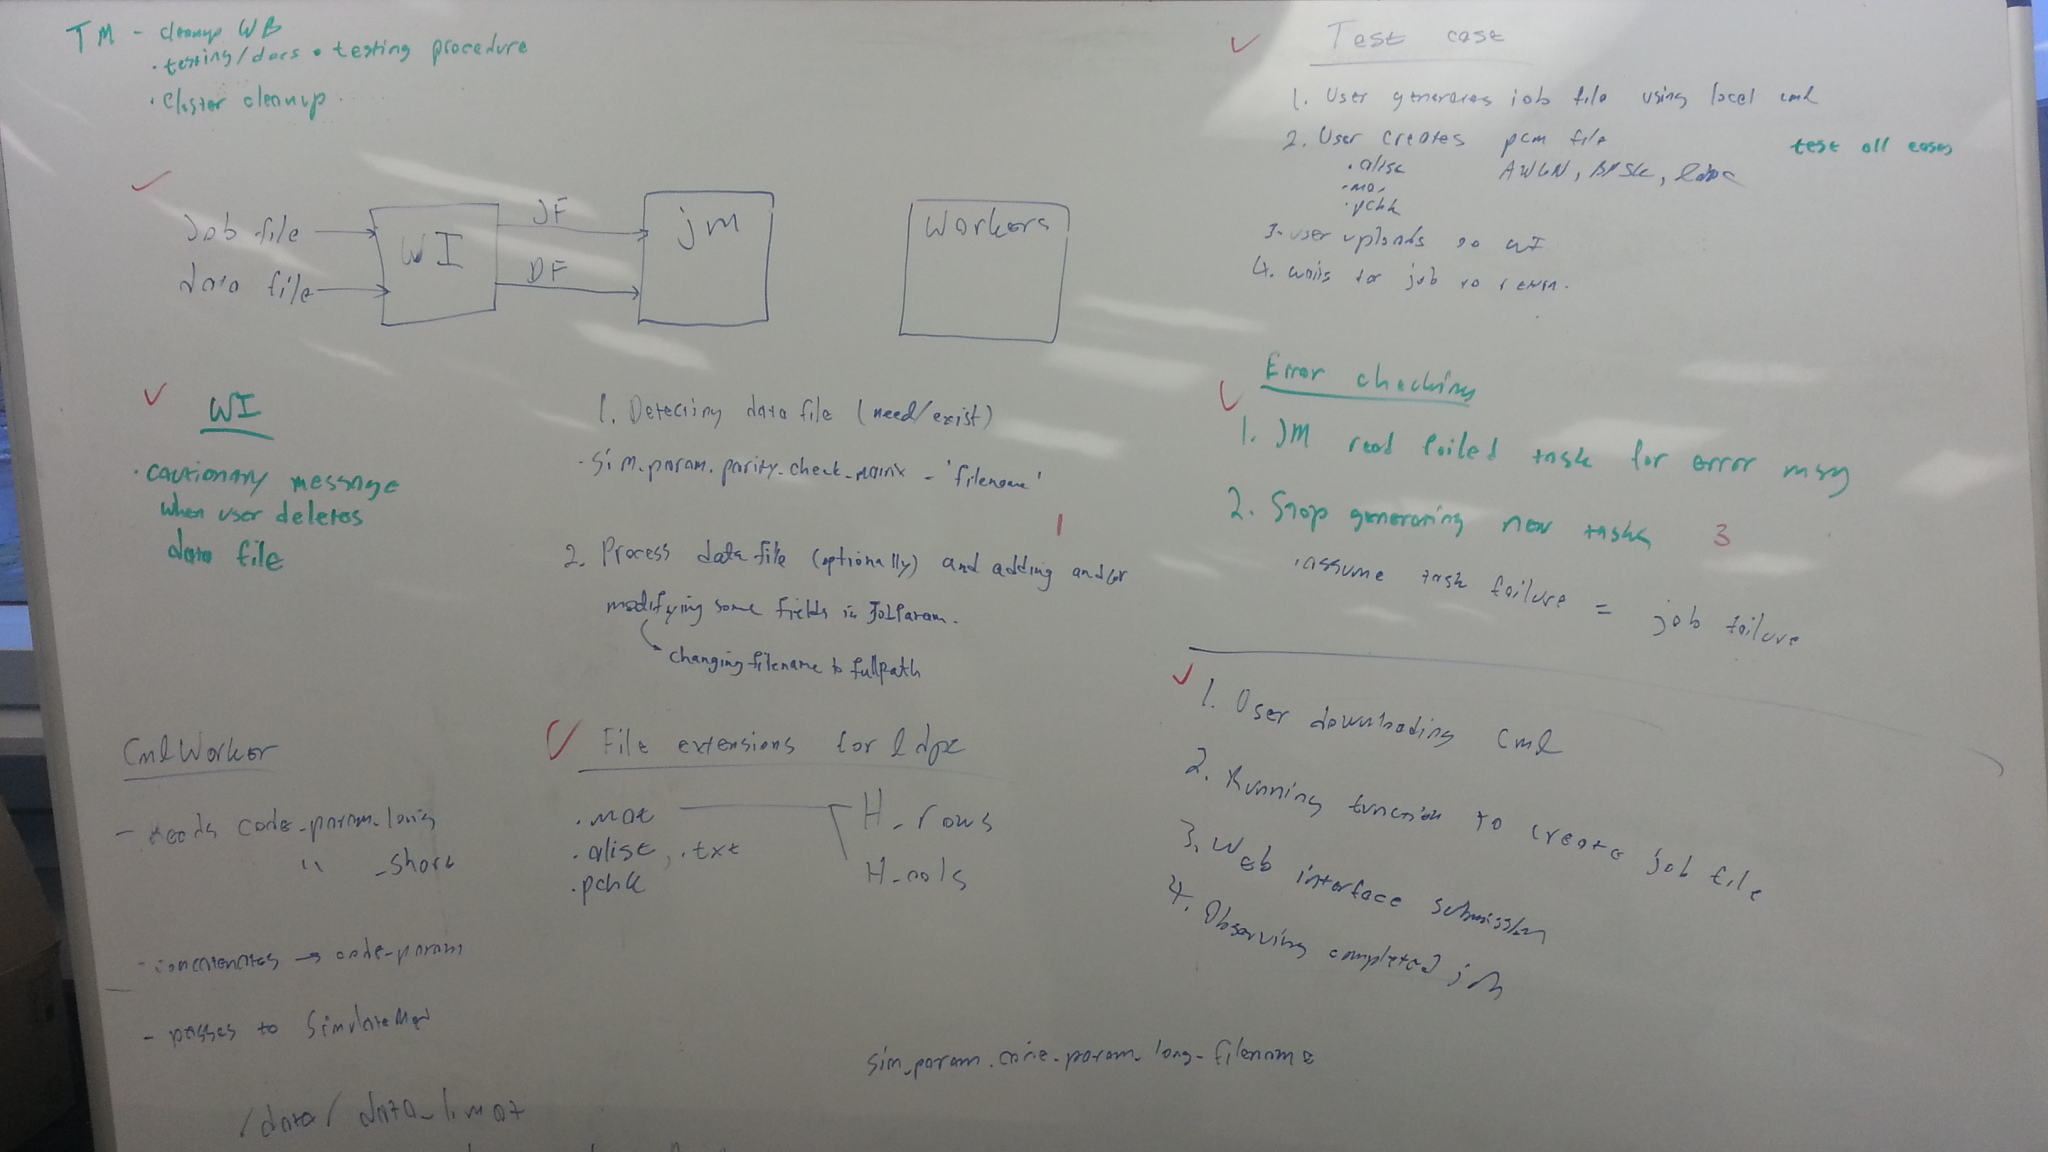 TM - cleanup WB
· testing/docs • testing procedure
· Cluster cleanup
Job file
data file
WI
JF
DF
jm
Workers
WI
· cautionary message
when user deletes
data file
1. Detecting data file (need/exist)
· sim_param.parity_check_matrix = 'filename'
1
2. Process data file (optionally) and adding and/or
modifying some fields in JobParam.
changing filename to fullpath
CmlWorker
- needs code_param_long
" _short
- concatenates → code_param
- passes to SimulateMod
/data/ data_1.mat
File extensions for ldpc
.mat
.alist, .txt
.pchk
H_rows
H_cols
Test case
1. User generates job file using local cml
2. User creates pcm file
test all cases
.alist
AWGN, BPSK, ldpc
.mat
.pchk
3. user uploads to WI
4. waits for job to return.
Error checking
1. JM read failed task for error msg
2. Stop generating new tasks 3
· assume task failure = job failure
1. User downloading cml
2. Running function to create job file
3. Web interface submission
4. Observing completed job
sim_param.code_param_long_filename